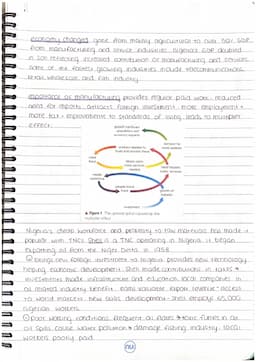 economy changed gone from mainly agricultural to over 50% GDP
from manufacturing and service industries. Nigeria's GDP doubled
in 2011 reflecting increased contribution of manufacturing and services.
some of the fastest growing industries include telecommunications,
retail wholesale and film industry.
importance of manufacturing provides regular paid work, reduced
need for imports, attracts foreign investment, more employment =
more tax = improvements to standards of living, leads to multiplier
effect.
Figure 1
Nigeria's cheap workforce and proximity to raw materials has made it
popular with TNCs. Shell is a TNC operating in Nigeria. It began
exporting oil from the Niger Delta in 1958
brings new foreign investment to Nigeria, provides new technology,
helping economic development. Shell made contributions in taxes +
investments, made infrastructure and education, local companies in
oil related industry benefit, earns valuable export revenue, access
to world markets, new skills development, Shell employ 65,000
Nigerian workers.
Poor working conditions, frequent oil flares + toxic fumes in air
oil spills cause water pollution + damage fishing industry, local
workers poorly paid